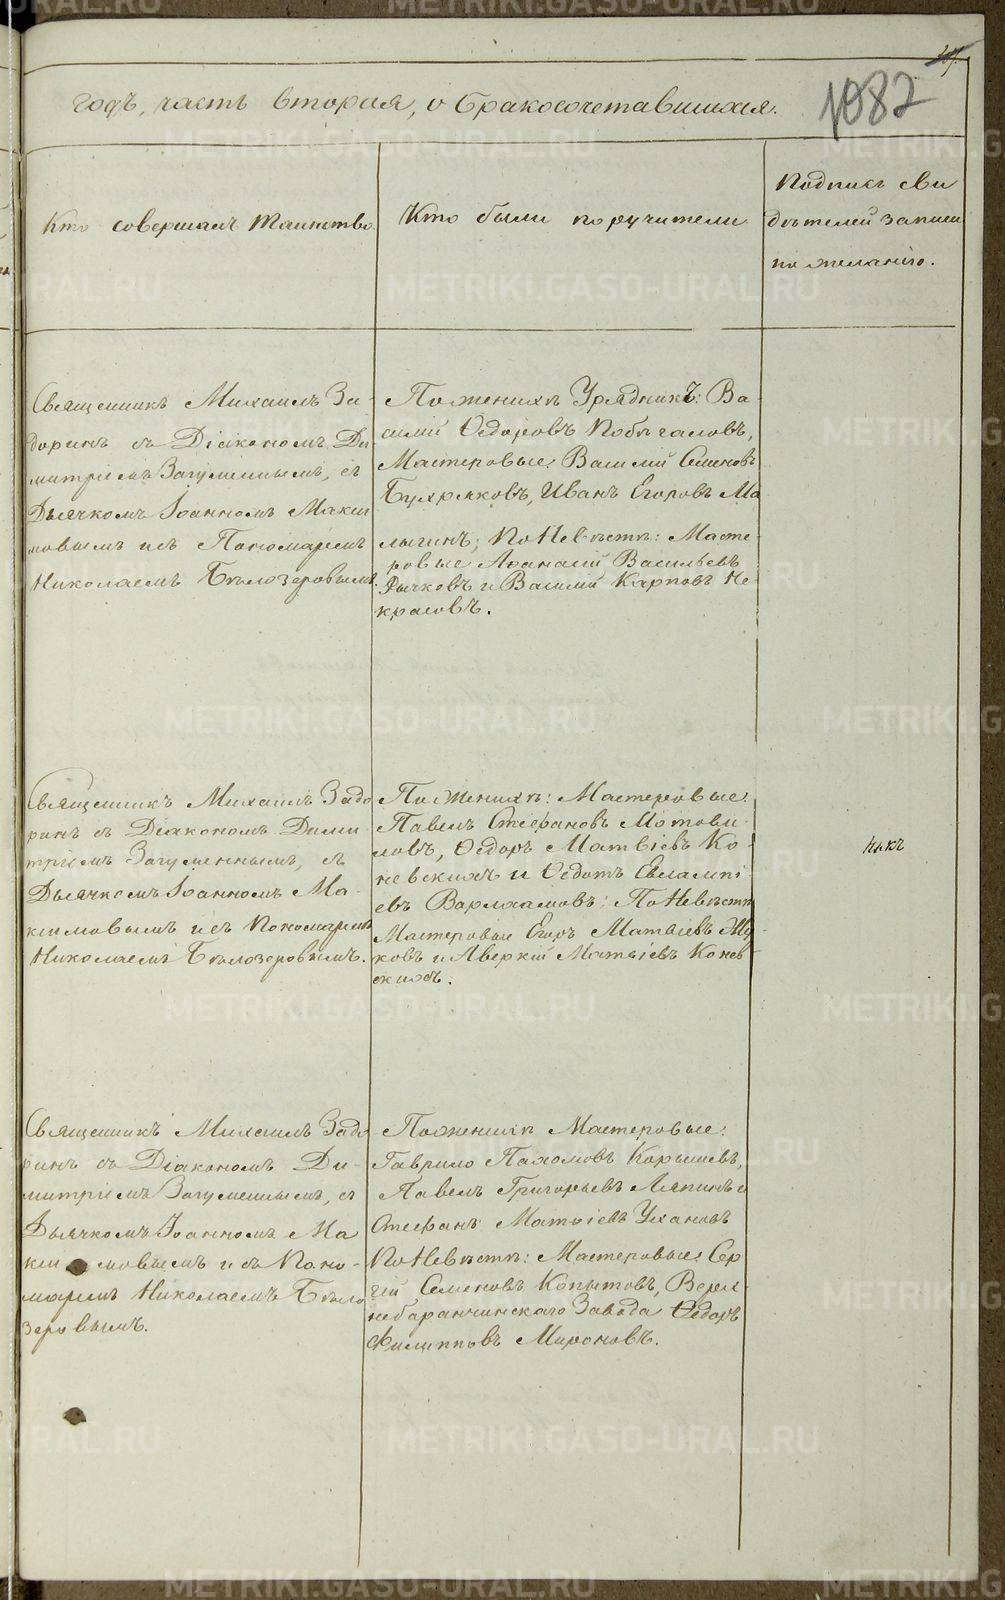 годъ, часть вторая, о бракосочетавшихся.
1082
Кто совершалъ Таинство.
Кто были поручители
Подпись сви
дѣтелей записи
по желанію.
Священникъ Михаилъ За-
доринъ съ Діакономъ Ди
митріемъ Загуменнымъ, съ
Дьячкомъ Іоанномъ Макси
мовымъ и съ Пономаремъ
Николаемъ Бѣлозеровымъ.
По женихѣ Урядникъ: Ва-
силий Ѳедоровъ Побѣгаловъ,
Мастеровые Василий Семеновъ
Бухряковъ, Иванъ Егоровъ Ма
лыгинъ; По Невѣстѣ: Масте-
ровые Аѳанасій Васильевъ
Рычковъ и Василий Карповъ Не-
красовъ.
Священникъ Михаилъ Задо
ринъ съ Діакономъ Дими
тріемъ Загуменнымъ, съ
Дьячкомъ Іоанномъ Ма-
ксимовымъ и съ Пономаремъ
Николаемъ Бѣлозеровымъ.
По Женихѣ: Мастеровые:
Павелъ Стефановъ Мотови-
ловъ, Ѳедоръ Матвіевъ Ко-
невскихъ и Ѳедотъ Евлампі
евъ Варлаамовъ; По Невѣстѣ
Мастеровые Егоръ Матвіевъ Жу-
ковъ и Аверкій Матвіевъ Конев-
скихъ.
Священникъ Михаилъ Задо
ринъ съ Діакономъ Ди-
митріемъ Загуменнымъ, съ
Дьячкомъ Іоанномъ Ма
кси мовымъ и съ Поно-
маремъ Николаемъ Бѣло
зеровымъ.
По женихѣ Мастеровые:
Гаврило Пахомовъ Корышевъ,
Павелъ Григорьевъ Ляпинъ и
Стефанъ Матвіевъ Ухановъ
По Невѣстѣ: Мастеровые Сер
гій Семеновъ Копытовъ, Верх-
небаранчинскаго Завода Ѳедоръ
Филипповъ Мироновъ.
METRIKI.GASO-URAL.RU